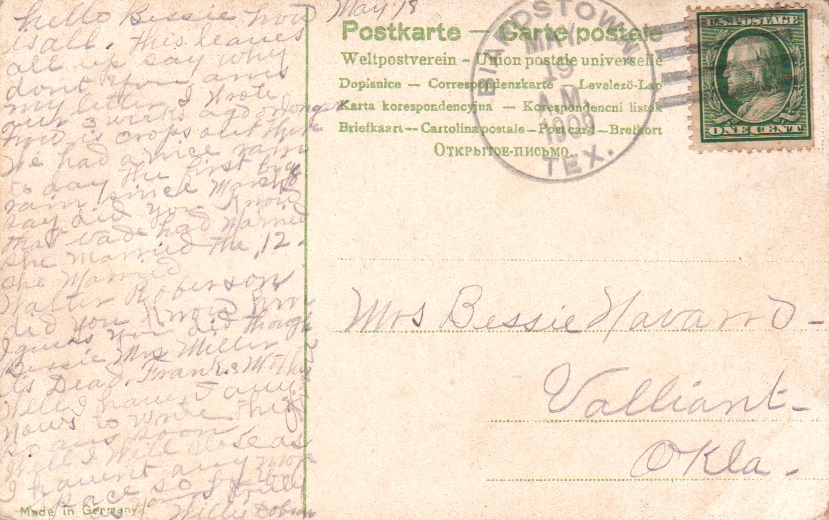 May 18
hello Bessie how
is all. This leaves
all up say why
dont you ans
my letter I wrote
over 3 weeks ago or longer
how is crops out there
We had a nice rain
to day the first big
rain since March
say did you know
that Wade had Married
she married the 12.
she Married
Walter Roberson
did you know him
I guess you did though
Bessie Mrs Miller
is Dead. Frank's Mother
Well I haven't any
nows to write this
so ans soon
Will I Will close as
I havent any more
space so
as Willie Dobson
Made in Germany
Postkarte — Carte postale
Weltpostverein — Union postale universelle
Dopisnice — Correspondenzkarte — Levelező-Lap
Karta korespondencyjna — Korespondencni listok
Briefkaart — Cartolina postale — Post card — Brefkort
Открытое-письмо
BIARDSTOWN
MAY
19
M
1909
TEX.
U.S. POSTAGE
ONE CENT
Mrs Bessie Navarro -
Valliant -
Okla.